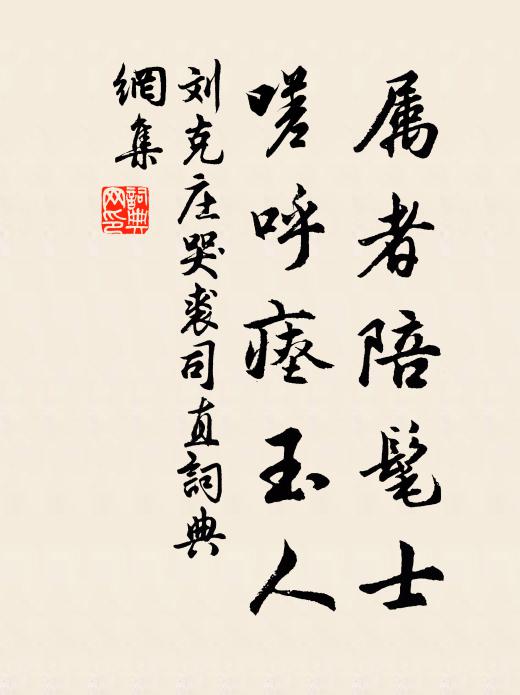 属者陪髦士
嗟呼瘗玉人
刘克庄哭裘司直词典
網集
詞典網印